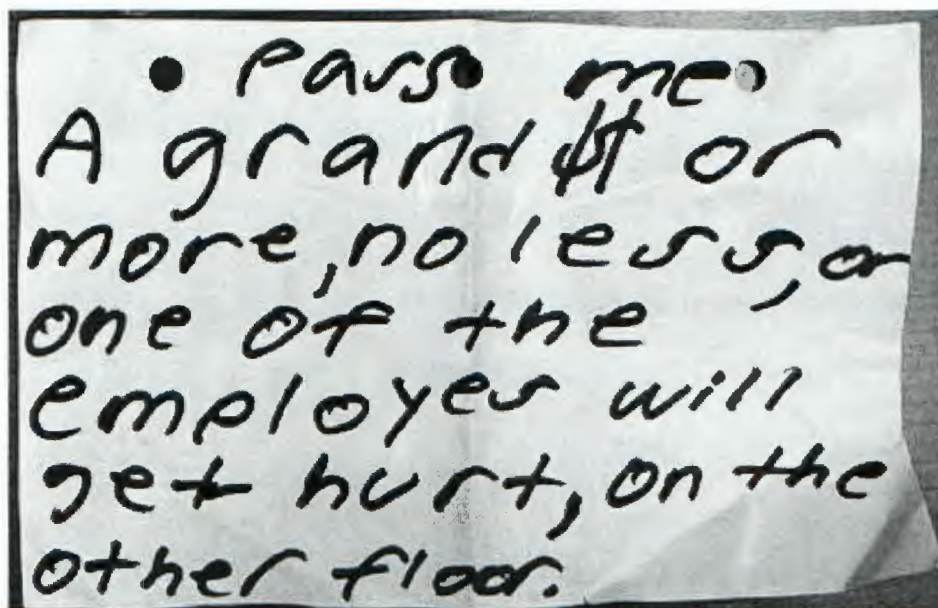 Pass me
A grand $ or
more, no less, or
one of the
employes will
get hurt, on the
other floor.